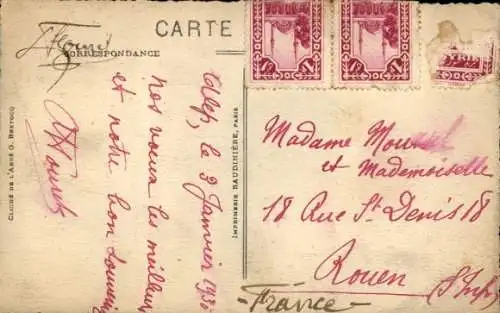 CARTE
CORRESPONDANCE
Alep, le 3 Janvier 1930
Nos vœux les meilleurs
et notre bon souvenir
Madame
et Mademoiselle
18 Rue St Denis 18
Rouen (S. Infre)
France
CLICHÉ DE L'ABBÉ G. BRETOCQ
IMPRIMERIE BAUDINIÈRE, PARIS